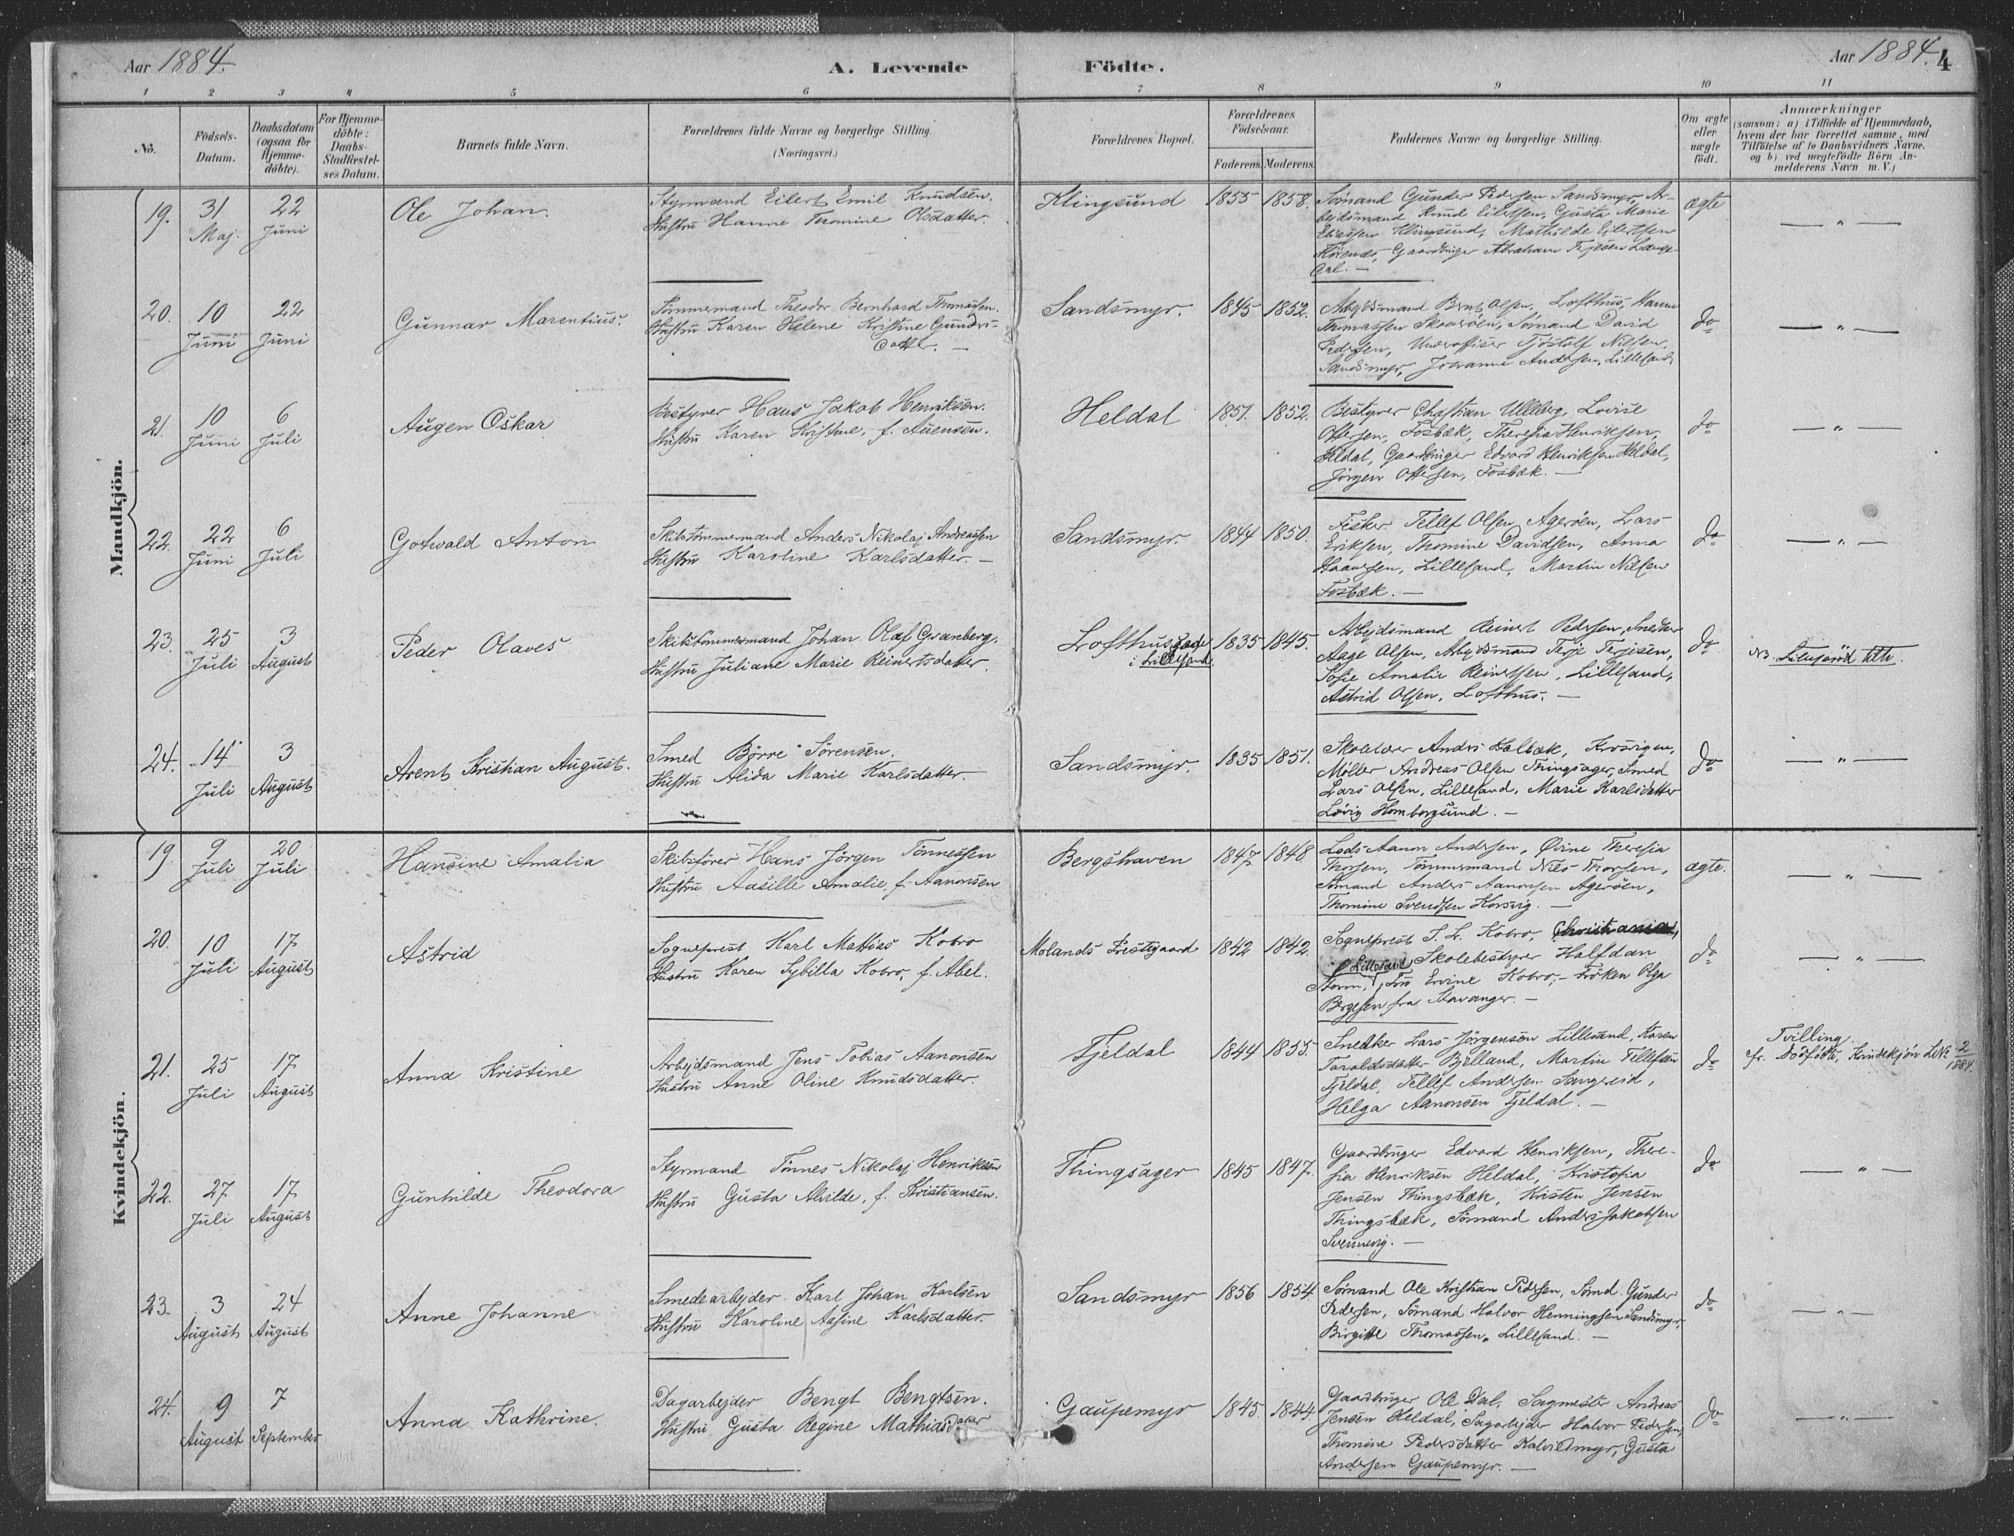 Aar 1884.
A. Levende Födte.
Aar 1884. 4
1 2 3 4 5 6 7 8 9 10 11
No.
Födsels-
Datum.
Daabsdatum
(ogsaa för
Hjemme-
döbte).
For Hjemme-
döbte:
Daabs-
Stadfæstel-
ses Datum.
Barnets fulde Navn.
Forældrenes fulde Navne og borgerlige Stilling.
(Næringsvei.)
Forældrenes Bopæl.
Forældrenes
Födselsaar.
Faderens. Moderens.
Faddernes Navne og borgerlige Stilling.
Om ægte
eller
uægte
födt.
Anmærkninger
(saasom: a) i Tilfælde af Hjemmedaab,
hvem der har forrettet samme, med
Tilföielse af to Daabsvidners Navne.
og b) ved uægtefödte Börn An-
melderens Navn m. V.)
Mandkjön.
19.
31
Maj.
22
Juni
Ole Johan.
Styrmand Eilert Emil Knudsen.
Hustru Hanne Tomine Olsdatter.
Klingsund
1855 1858.
Sömand Gunder Pedersen Sandsmyr, Ar-
bejdsmand Knud Eilertsen, Gusta Marie
Klingsund, Mathilde Eilertsen
Gaardbruger Abraham Terjesen Lange-
ægte
— „ —
20.
10
Juni
22
Juni
Gunnar Marentius.
Tömmermand Theodor Bernhard Thomassen.
Hustru Karen Helene Kristine Gunders-
datter. —
Sandsmyr.
1845 1852.
Arbejdsmand Bernt Olsen, Lofthus, Hanne
Thomassen Skauröen, Sömand David
Pedersen, Underofficer Tjöstolf Nilsen,
Sandsmyr, Johanne Andersen, Lillesand.
do
— „ —
21.
10
Juni
6
Juli
Augen Oskar
Bestyrer Hans Jakob Henriksen.
Hustru Karen Kristine, f. Auensen.
Heldal
1857. 1852.
Bestyrer Chrstian Ulleberg, Lovise
Ottersen, Fosbæk, Theresia Henriksen,
Heldal, Gaardbruger Edvard Henriksen Heldal,
Jörgen Ottesen, Fosbæk. —
do
— „ —
22.
22
Juni
6
Juli
Gotwald Anton
Skibstömmermand Anders Nikolaj Andreassen
Hustru Karoline Karlsdatter. —
Sandsmyr
1844 1850.
Fisker Tellef Olsen, Ageröen, Lars
Eriksen, Thomine Davidsen, Anna
Haavesen, Lillesand, Martin Nilsen
Fosbæk. —
do
— „ —
23.
25
Juli
3
August
Peder Olaves
Skibstömmermand Johan Olaf Granberg.
Hustru Juliane Marie Reinertsdatter.
Lofthus gade
i Lillesand
1835 1845.
Arbejdsmand Reinert Pedersen, Snedker
Aage Olsen, Arbejdsmand Terje Terjesen,
Sofie Amalie Reinertsen, Lillesand,
Astrid Olsen, Lofthus. —
do
NB. Lillesand
24.
14
Juli
3
August
Arent Kristian August.
Smed Börre Sörensen.
Hustru Alida Marie Karlsdatter. —
Sandsmyr.
1835 1851.
Skolelærer Anders Holbæk, Krosvigen,
Möller Andreas Olsen Thingsager, Smed
Lars Olsen, Lillesand, Marie Karlsdatter
Lövig Homborgsund. —
do
— „ —
Kvindekjön.
19
9
Juli
20
Juli
Hansine Amalia
Skibsförer Hans Jörgen Tönnessen
Hustru Aasille Amalie, f. Aanonsen
Bergshaven
1847 1848
Lods Aanon Andersen, Ovine Theresia
Thorsen, Tömmermand Niels Thorsen,
Sömand Anders Aanonsen Ageröen,
Thomine Svendsen Korsvig. —
ægte.
— „ —
20.
10
Juli
17
August
Astrid
Sogneprest Karl Mattias Kobro
Hustru Karen Sybilla Kobro, f. Abel.
Molands Prestegaard
1842 1842.
Sogneprest Kobro, Christiania,
Skolebestyrer Halfdan
Storm, Lillesand, Fru Ervine Kobro, — Fröken Olga
Bergesen fra Stavanger. —
do
— „ —
21.
25
Juli
17
August
Anna Kristine
Arbejdsmand Jens Tobias Aanonsen
Hustru Anne Oline Knudsdatter.
Tjeldal
1844 1855.
Snedker Lars Jörgensen Lillesand, Karen
Taraldsdatter Bjelland, Martin Tellefsen
Tjeldal, Tellef Andersen Sangereid,
Helga Aanonsen Tjeldal. —
do
Tvilling
cfr. Dödfödte, Kvindekjön L.No 2/1884.
22.
27
Juli
17
August
Gunhilde Theodora
Styrmand Tönnes Nikolaj Henriksen
Hustru Gusta Alvilde, f. Kristiansen.
Thingsager
1845 1847.
Gaardbruger Edvard Henriksen, There-
sia Henriksen Heldal, Kristofia
Jensen Thingsbæk, Kristen Jensen
Thingsbæk, Sömand Anders Jakobsen
Svennevig. —
do
— „ —
23.
3
August
24
August
Anne Johanne
Smedearbejder Karl Johan Karlsen
Hustru Karoline Aasine Karlsdatter.
Sandsmyr
1856 1854.
Sömand Ole Kristian Pedersen, Sömd. Gunder
Pedersen, Sömand Halvor Henningsen Sandsmyr,
Birgitte Thomassen, Lillesand. —
do
— „ —
24.
9
August
7
September
Anna Kathrine.
Dagarbejder Bengt Bengtsen.
Hustru Gusta Regine Mathiasdatter
Gaupemyr
1845. 1844.
Gaardbruger Ole Dal, Sagmester Andreas
Jensen Heldal, Sagarbejder Halvor Pedersen,
Thomine Pedersdatter Kalvildmyr, Gusta
Andersen Gaupemyr. —
do
— „ —